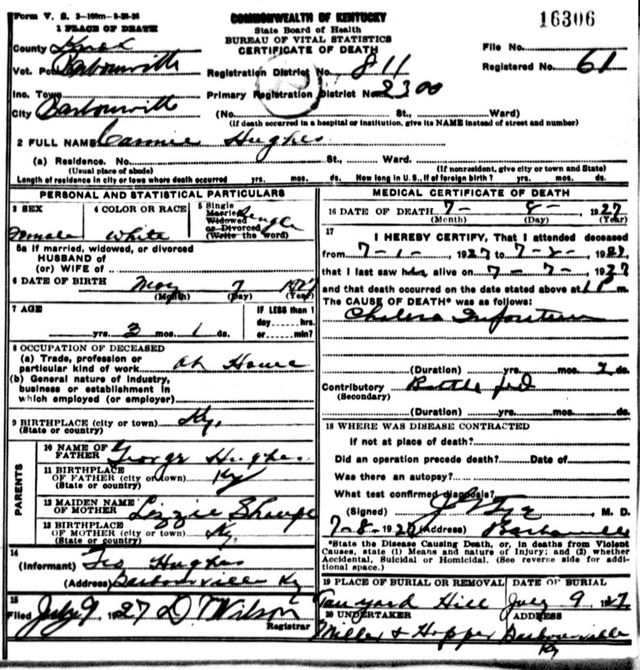 Form V. S.
COMMONWEALTH OF KENTUCKY
16306
1 PLACE OF DEATH
State Board of Health
BUREAU OF VITAL STATISTICS
CERTIFICATE OF DEATH
County Knox
File No.
Vot. Barbourville
Registration District No. 811
Registered No. 61
Inc. Town
Primary Registration District No. 2300
City Barbourville
(No. St., Ward)
(If death occurred in a hospital or institution, give its NAME instead of street and number)
2 FULL NAME Hughes
(a) Residence. No. St., Ward.
(Usual place of abode) (If nonresident, give city or town and State)
Length of residence in city or town where death occurred yrs. mos. ds. How long in U. S., if of foreign birth? yrs. mos. ds.
PERSONAL AND STATISTICAL PARTICULARS
3 SEX
4 COLOR OR RACE
5 Single
Married
Widowed
or Divorced
(Write the word)
Single
Female
White
5a If married, widowed, or divorced
HUSBAND of
(or) WIFE of
6 DATE OF BIRTH May 7 1927
(Month) (Day) (Year)
7 AGE
IF LESS than 1
day hrs.
or min.
yrs. 2 mos. 1 ds.
8 OCCUPATION OF DECEASED
(a) Trade, profession or
particular kind of work At Home
(b) General nature of industry,
business or establishment in
which employed (or employer)
9 BIRTHPLACE (city or town) Ky.
(State or country)
PARENTS
10 NAME OF
FATHER George Hughes
11 BIRTHPLACE
OF FATHER (city or town) Ky
(State or country)
12 MAIDEN NAME
OF MOTHER Lizzie
13 BIRTHPLACE
OF MOTHER (city or town) Ky.
(State or country)
14
(Informant) Geo Hughes
(Address) Barbourville Ky
15
Filed July 9, 1927 D T Wilson
Registrar
MEDICAL CERTIFICATE OF DEATH
16 DATE OF DEATH 7- 8- 1927
(Month) (Day) (Year)
17
I HEREBY CERTIFY, That I attended deceased
from 7-1- 1927 to 7-8- 1927
that I last saw her alive on 7-7- 1927
and that death occurred on the date stated above at 1 P m.
The CAUSE OF DEATH* was as follows:
Cholera Infantum
(Duration) yrs. mos. ds.
Contributory Bottle fed
(Secondary)
(Duration) yrs. mos. ds.
18 WHERE WAS DISEASE CONTRACTED
If not at place of death?
Did an operation precede death? Date of
Was there an autopsy?
What test confirmed diagnosis?
(Signed) M. D.
7-8-1927 (Address) Barbourville
*State the Disease Causing Death, or, in deaths from Violent
Causes, state (1) Means and nature of Injury; and (2) whether
Accidental, Suicidal or Homicidal. (See reverse side for addi-
tional space.)
19 PLACE OF BURIAL OR REMOVAL
DATE OF BURIAL
Tanyard Hill
July 9 1927
20 UNDERTAKER
ADDRESS
Miller & Hopper
Barbourville
Ky